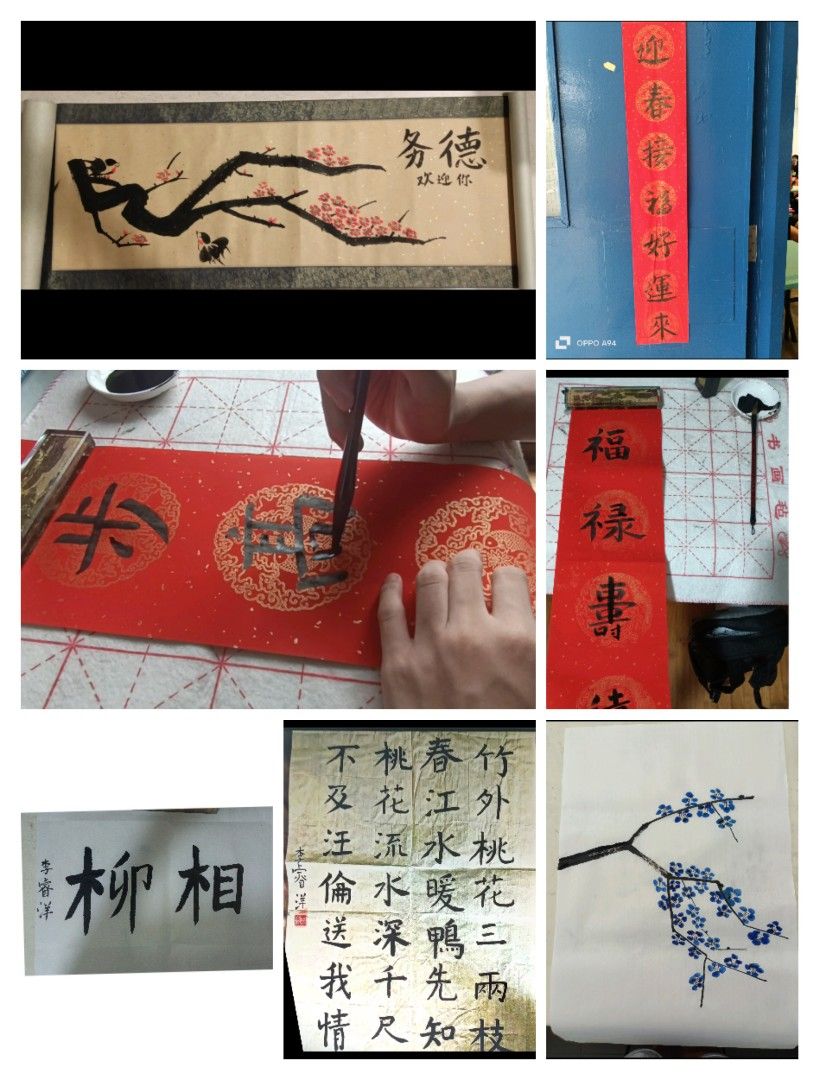 务德
欢迎你
迎春接福好運來
OPPO A94
福禄壽
书画毡
相柳
李睿洋
竹外桃花三兩枝
春江水暖鴨先知
桃花流水深千尺
不及汪倫送我情
李睿洋